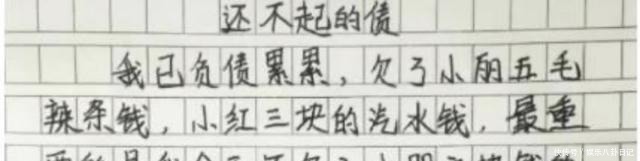 还不起的债
我已负债累累，欠了小丽五毛
辣条钱，小红三块的汽水钱，最重